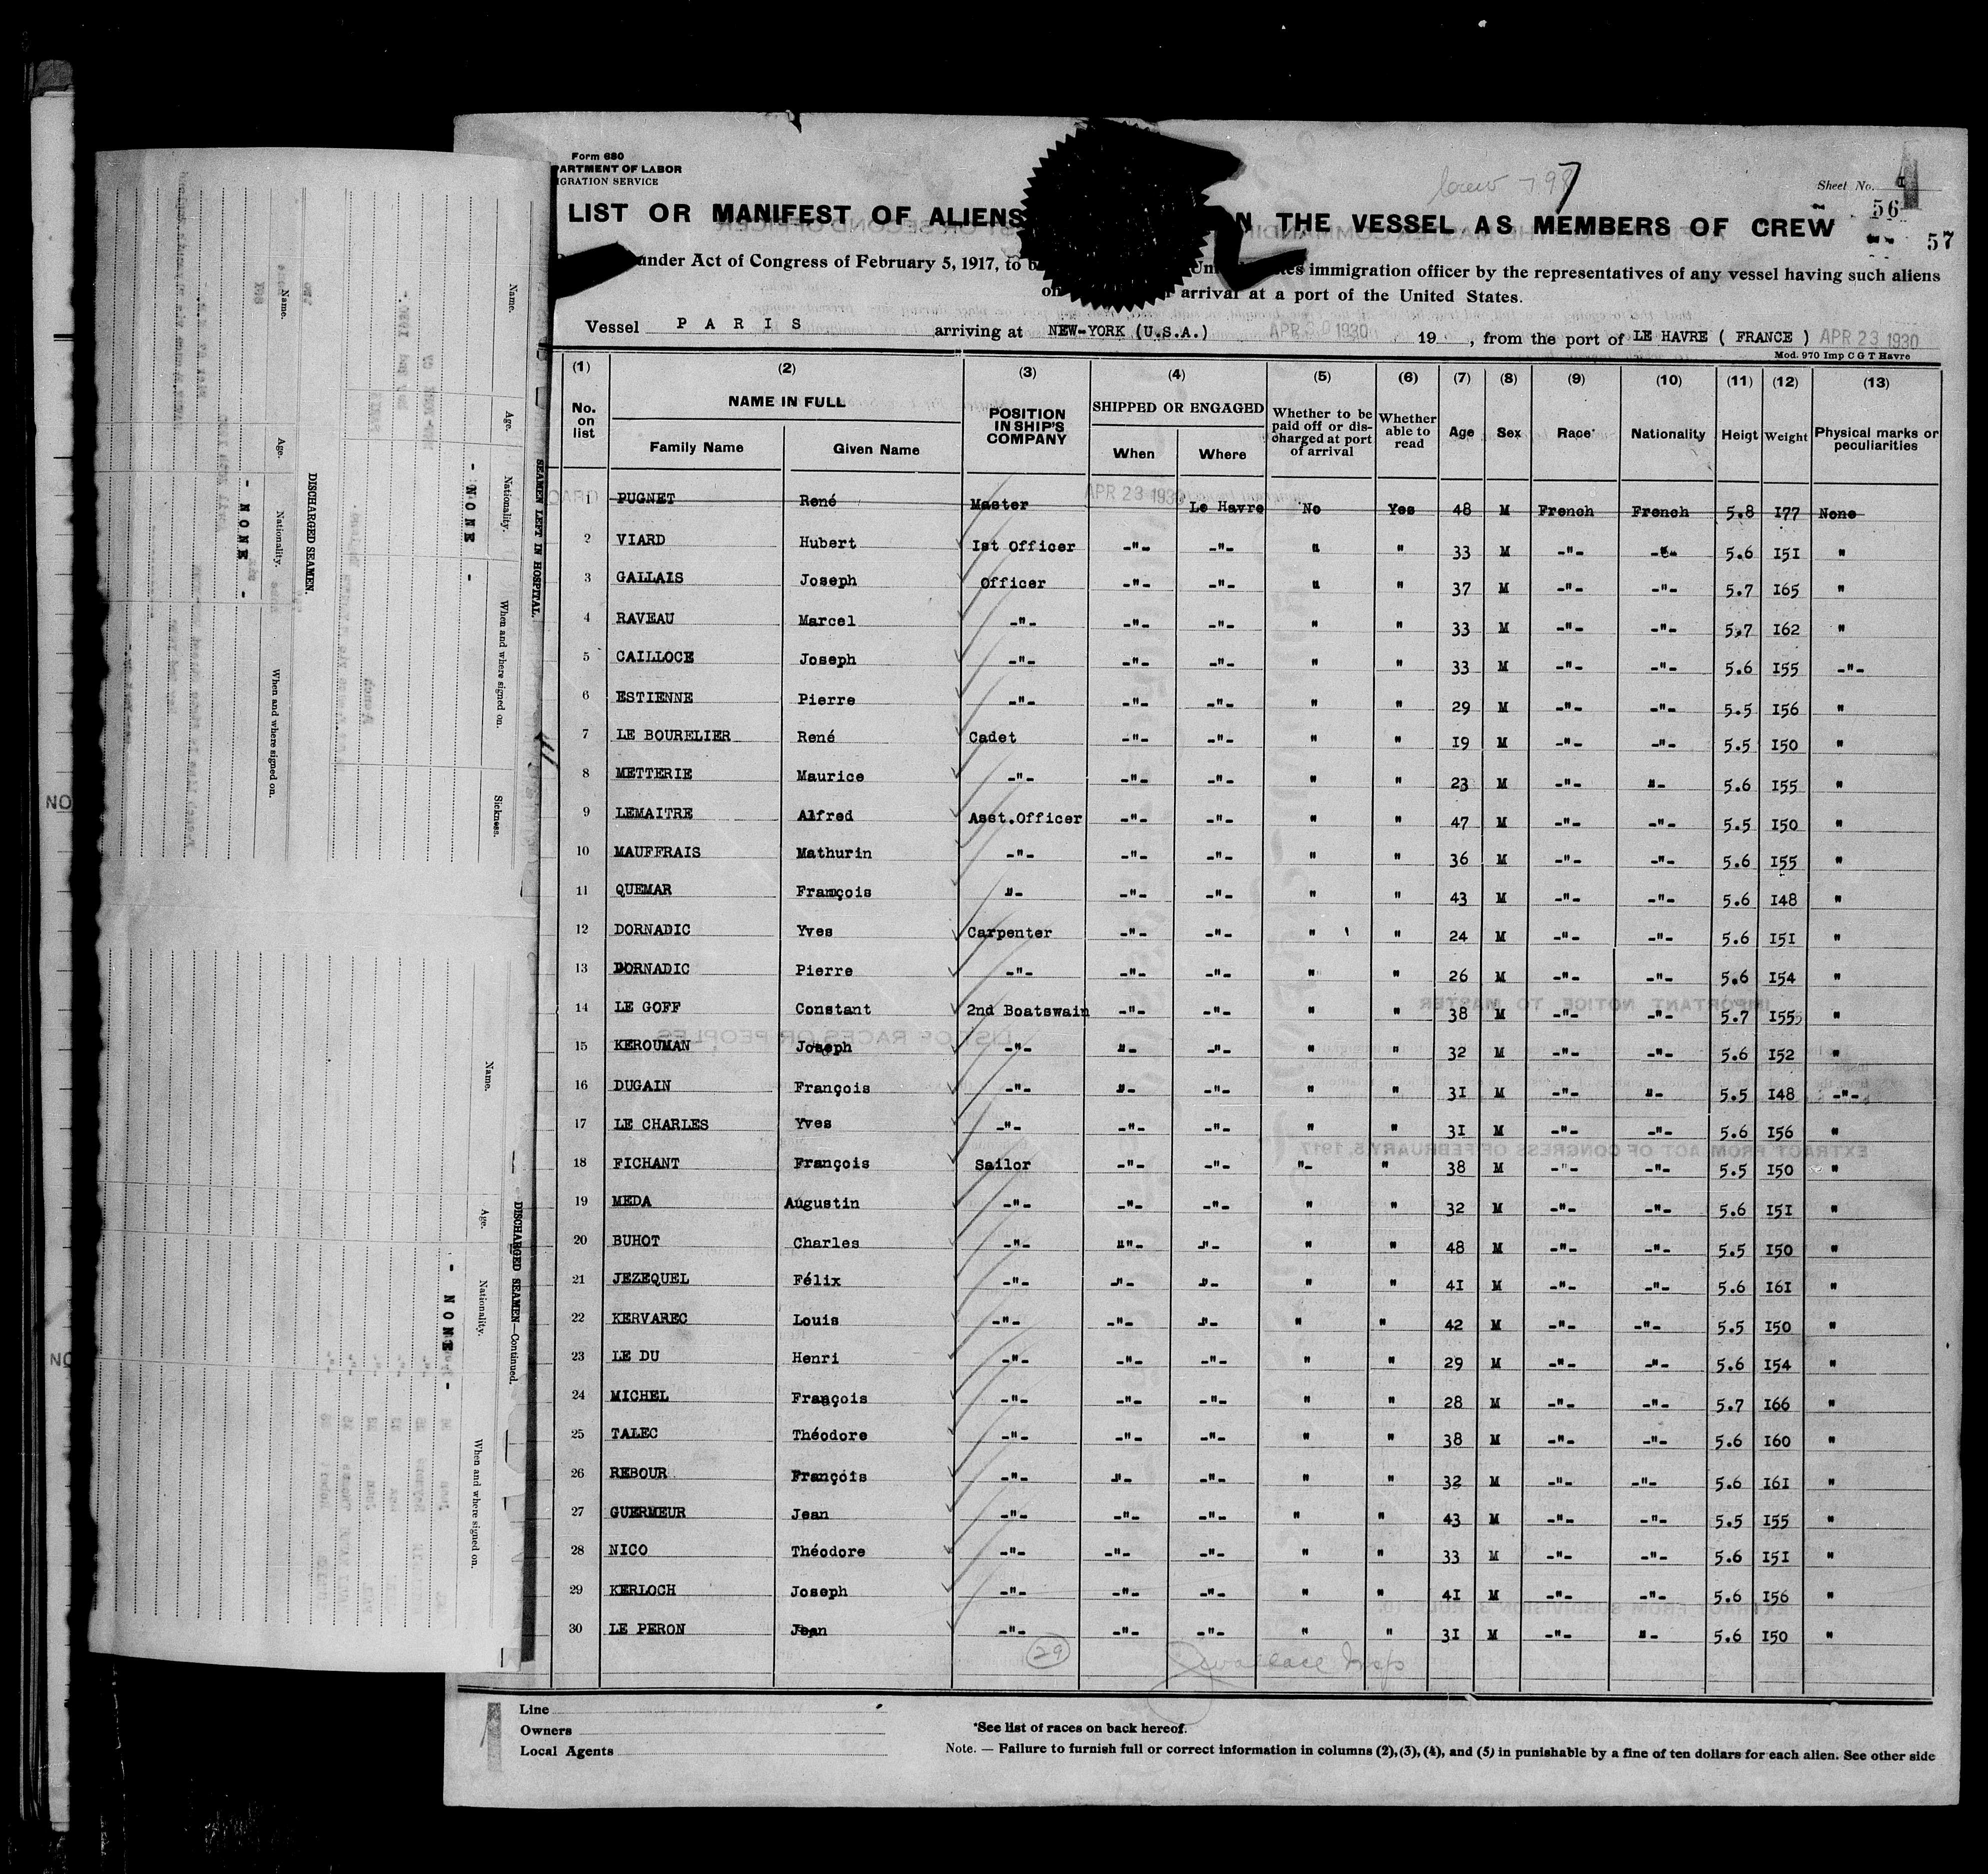 Form 680
PARTMENT OF LABOR
IGRATION SERVICE
Crew 798
Sheet No. I
56
57
LIST OR MANIFEST OF ALIENS N THE VESSEL AS MEMBERS OF CREW
under Act of Congress of February 5, 1917, to immigration officer by the representatives of any vessel having such aliens
on arrival at a port of the United States.
Vessel PARIS arriving at NEW-YORK (U.S.A.) APR 30 1930 19 , from the port of LE HAVRE ( FRANCE ) APR 23 1930
Mod. 970 Imp C G T Havre
(1) (2) (3) (4) (5) (6) (7) (8) (9) (10) (11) (12) (13)
No. on list NAME IN FULL Family Name Given Name POSITION IN SHIP'S COMPANY SHIPPED OR ENGAGED When Where Whether to be paid off or discharged at port of arrival Whether able to read Age Sex Race* Nationality Heigt Weight Physical marks or peculiarities
1 PUGNET René Master APR 23 1930 Le Havre No Yes 48 M French French 5.8 I77 None
2 VIARD Hubert Ist Officer -"- -"- " " 33 M -"- -"- 5.6 I5I "
3 GALLAIS Joseph Officer -"- -"- " " 37 M -"- -"- 5.7 I65 "
4 RAVEAU Marcel -"- -"- -"- " " 33 M -"- -"- 5.7 I62 "
5 CAILLOCE Joseph -"- -"- -"- " " 33 M -"- -"- 5.6 I55 -"-
6 ESTIENNE Pierre -"- -"- -"- " " 29 M -"- -"- 5.5 I56 "
7 LE BOURELIER René Cadet -"- -"- " " I9 M -"- -"- 5.5 I50 "
8 METTERIE Maurice -"- -"- -"- " " 23 M -"- "- 5.6 I55 "
9 LEMAITRE Alfred Asst.Officer -"- -"- " " 47 M -"- -"- 5.5 I50 "
10 MAUFFRAIS Mathurin -"- -"- -"- " " 36 M -"- -"- 5.6 I55 "
11 QUEMAR François "- -"- -"- " " 43 M -"- -"- 5.6 I48 "
12 DORNADIC Yves Carpenter -"- -"- " " 24 M -"- -"- 5.6 I5I "
13 DORNADIC Pierre -"- -"- -"- " " 26 M -"- -"- 5.6 I54 "
14 LE GOFF Constant 2nd Boatswain -"- -"- " " 38 M -"- -"- 5.7 I55 "
15 KEROUMAN Joseph -"- "- -"- " " 32 M -"- -"- 5.6 I52 "
16 DUGAIN François -"- "- -"- " " 3I M -"- "- 5.5 I48 -"-
17 LE CHARLES Yves -"- -"- -"- " " 3I M -"- -"- 5.6 I56 "
18 FICHANT François Sailor -"- -"- "- " 38 M -"- -"- 5.5 I50 "
19 MEDA Augustin -"- -"- -"- " " 32 M -"- -"- 5.6 I5I "
20 BUHOT Charles -"- ""- -"- " " 48 M -"- -"- 5.5 I50 "
21 JEZEQUEL Félix -"- -"- -"- " " 4I M -"- -"- 5.6 I6I "
22 KERVAREC Louis -"- -"- -"- " " 42 M -"- -"- 5.5 I50 "
23 LE DU Henri -"- -"- -"- " " 29 M -"- -"- 5.6 I54 "
24 MICHEL François -"- -"- -"- " " 28 M -"- -"- 5.7 I66 "
25 TALEC Théodore -"- -"- -"- " " 38 M -"- -"- 5.6 I60 "
26 REBOUR François -"- -"- -"- " " 32 M -"- -"- 5.6 I6I "
27 GUERMEUR Jean -"- -"- -"- " " 43 M -"- -"- 5.5 I55 "
28 NICO Théodore -"- -"- -"- " " 33 M -"- -"- 5.6 I5I "
29 KERLOCH Joseph -"- -"- -"- " " 4I M -"- -"- 5.6 I56 "
30 LE PERON Jean -"- -"- -"- " " 3I M -"- "- 5.6 I50 "
29
Wallace Insp
Line
Owners
Local Agents
*See list of races on back hereof.
Note. — Failure to furnish full or correct information in columns (2), (3), (4), and (5) in punishable by a fine of ten dollars for each alien. See other side
SEAMEN LEFT IN HOSPITAL.
Name. Age. Nationality. When and where signed on. Sickness.
- NONE -
DISCHARGED SEAMEN.
Name. Age. Nationality. When and where signed on.
- NONE -
DISCHARGED SEAMEN—Continued.
Name. Age. Nationality. When and where signed on.
- NONE -
NO
NO